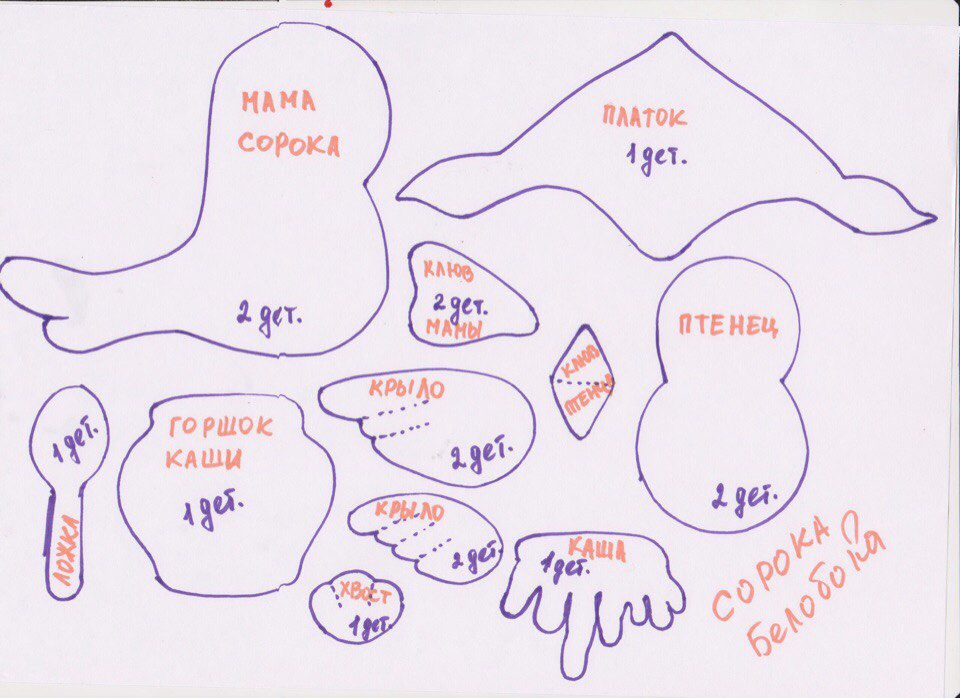 МАМА
СОРОКА
2 дет.
ПЛАТОК
1 дет.
КЛЮВ
2 дет.
МАМЫ
КЛЮВ
ПТЕНЦА
ПТЕНЕЦ
2 дет.
1 дет.
ЛОЖКА
ГОРШОК
КАШИ
1 дет.
КРЫЛО
2 дет.
КРЫЛО
2 дет.
ХВОСТ
1 дет.
КАША
1 дет.
СОРОКА
БЕЛОБОКА